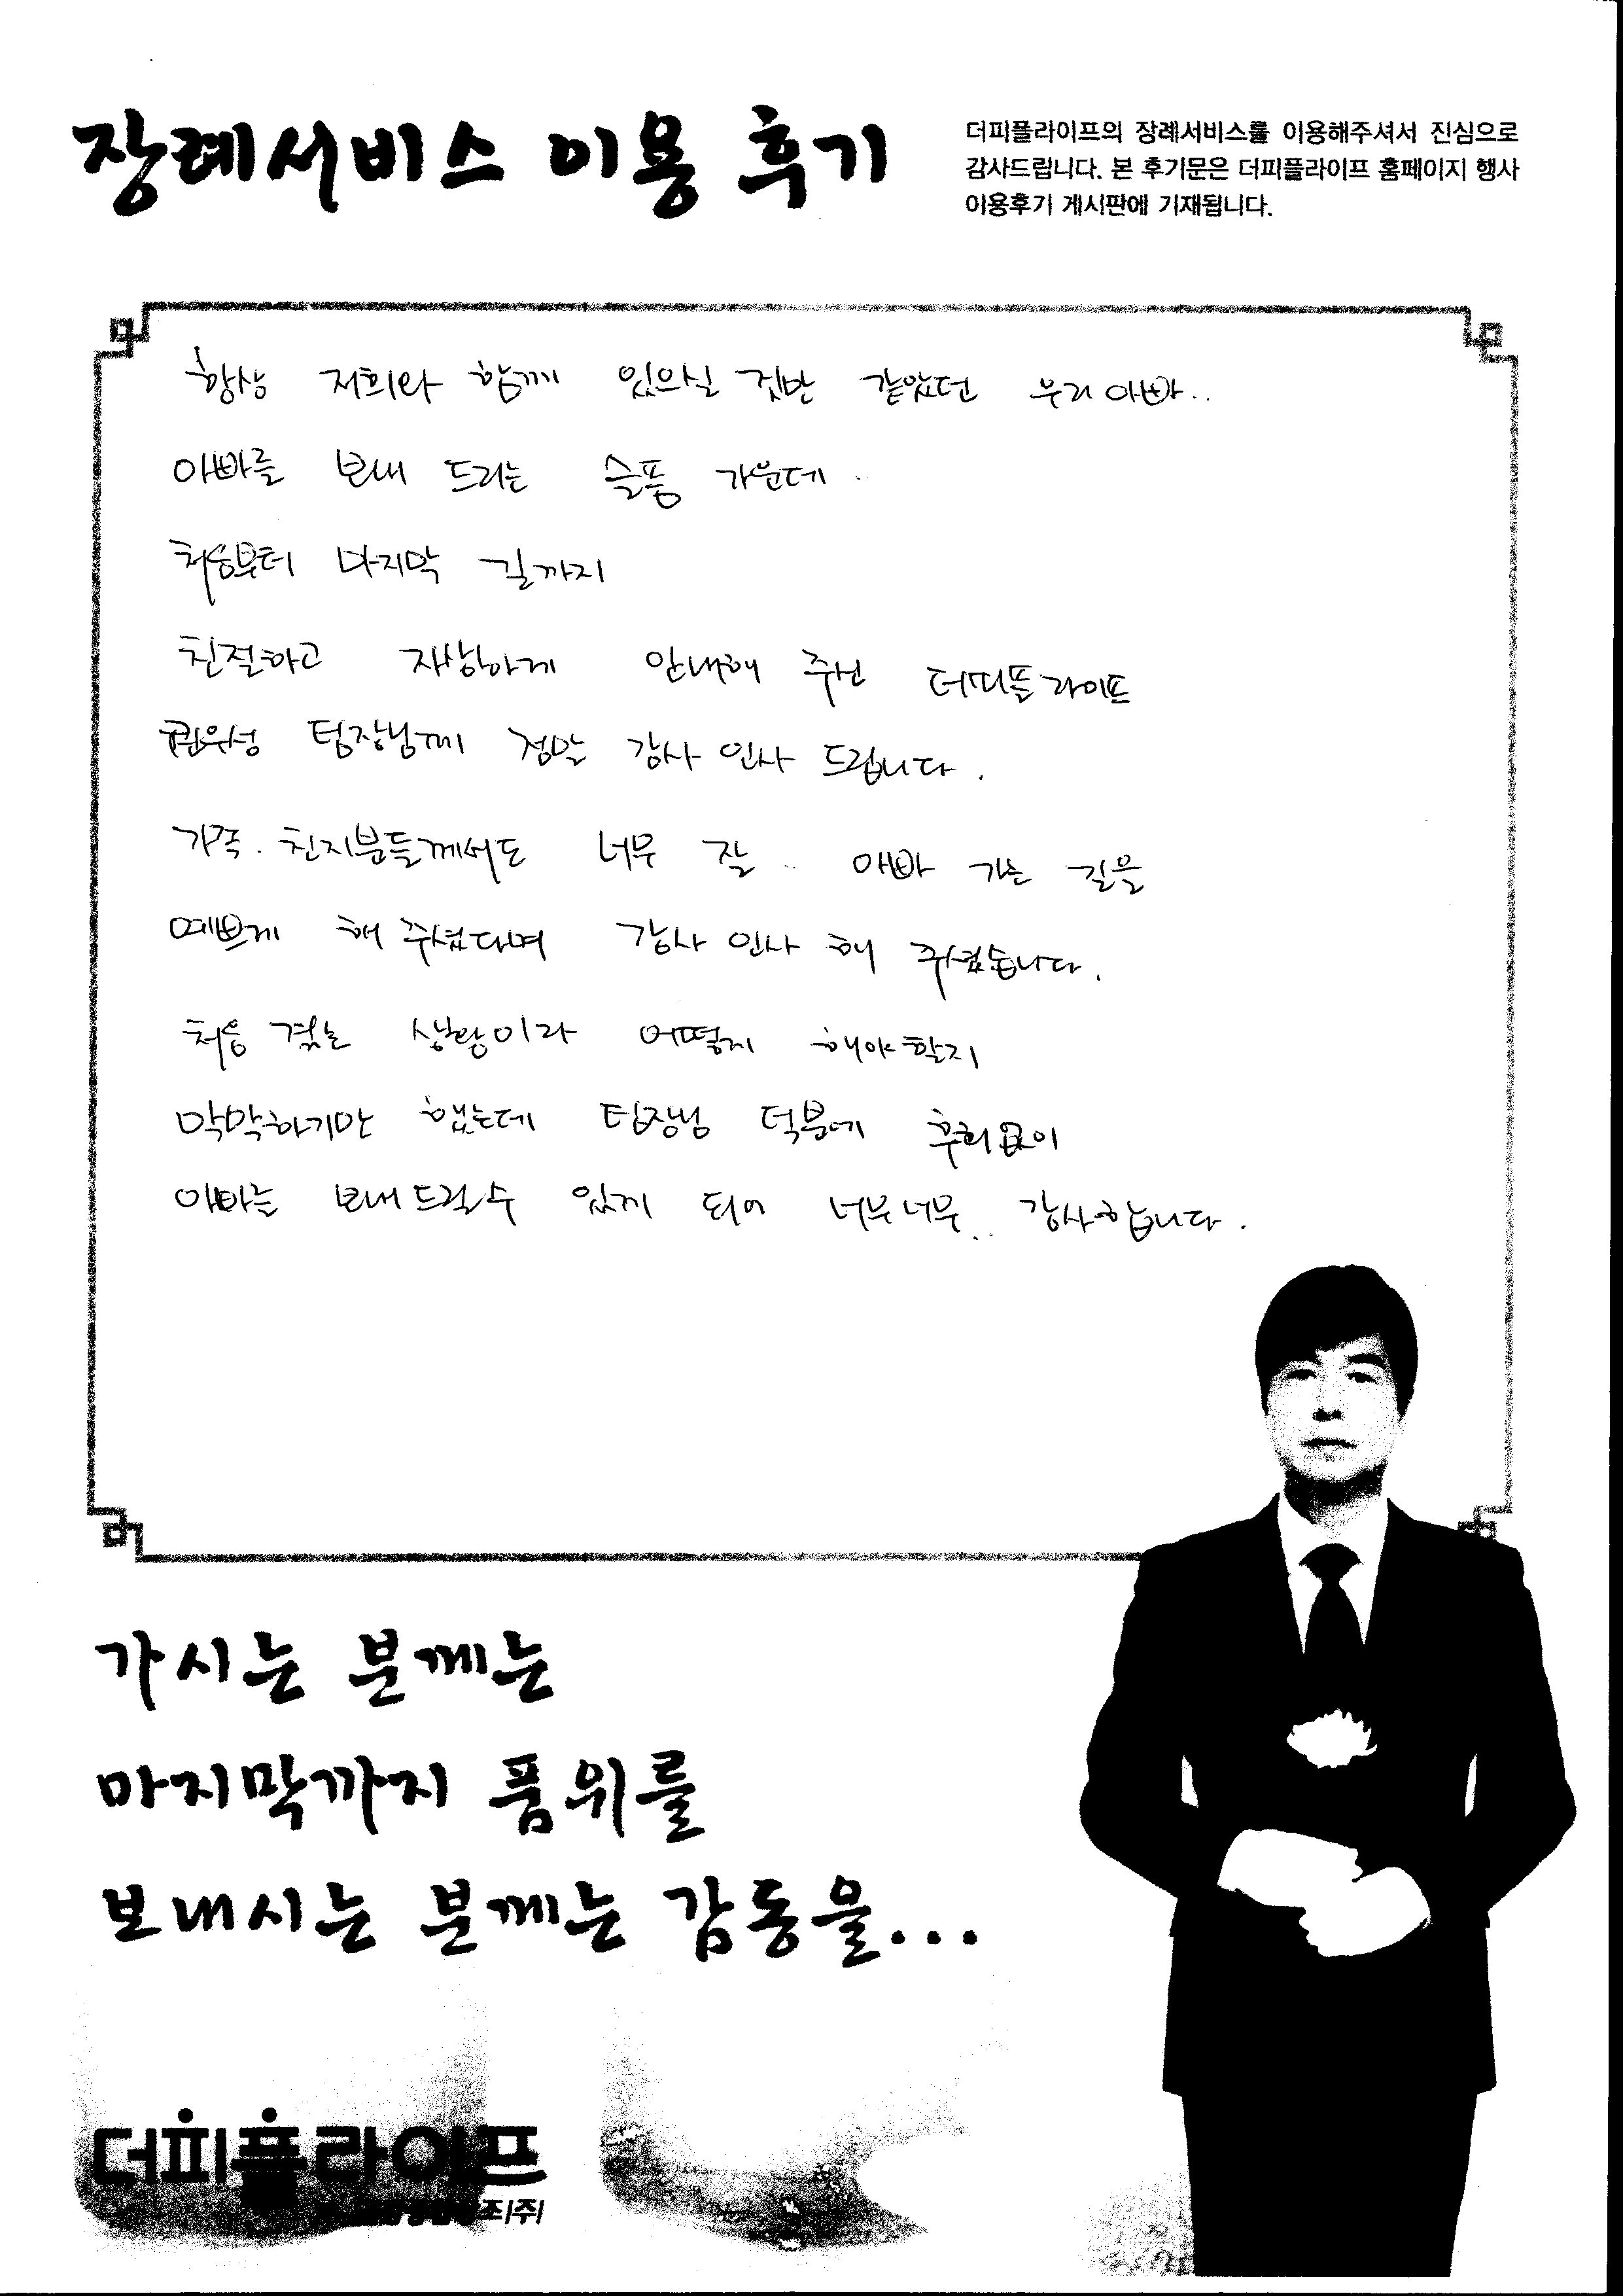 장례서비스 이용 후기
더피플라이프의 장례서비스를 이용해주셔서 진심으로
감사드립니다. 본 후기문은 더피플라이프 홈페이지 행사
이용후기 게시판에 기재됩니다.
항상 저희와 함께 있으실 것만 같았던 우리 아빠..
아빠를 보내 드리는 슬픔 가운데..
처음부터 마지막 길까지
친절하고 자상하게 안내해 주신 더피플라이프
팀장님께 정말 감사 인사 드립니다.
가족. 친지분들께서도 너무 잘.. 아빠 가는 길을
예쁘게 해 주셨다며 감사 인사 해 주셨습니다.
처음 겪는 상황이라 어떻게 해야할지
막막하기만 했는데 팀장님 덕분에 후회없이
아빠를 보내드릴수 있게 되어 너무너무.. 감사합니다.
가시는 분께는
마지막까지 품위를
보내시는 분께는 감동을...
더피플라이프